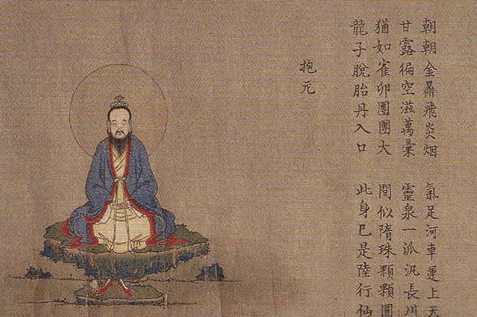 朝朝金鼐飛炎烟 氣足河車運上天
甘露徧空滋萬彙 靈泉一派況長川
猶如雀卵團團大 間似隋珠顆顆圓
龍子脫胎丹入口 此身已是陸行仙
抱元